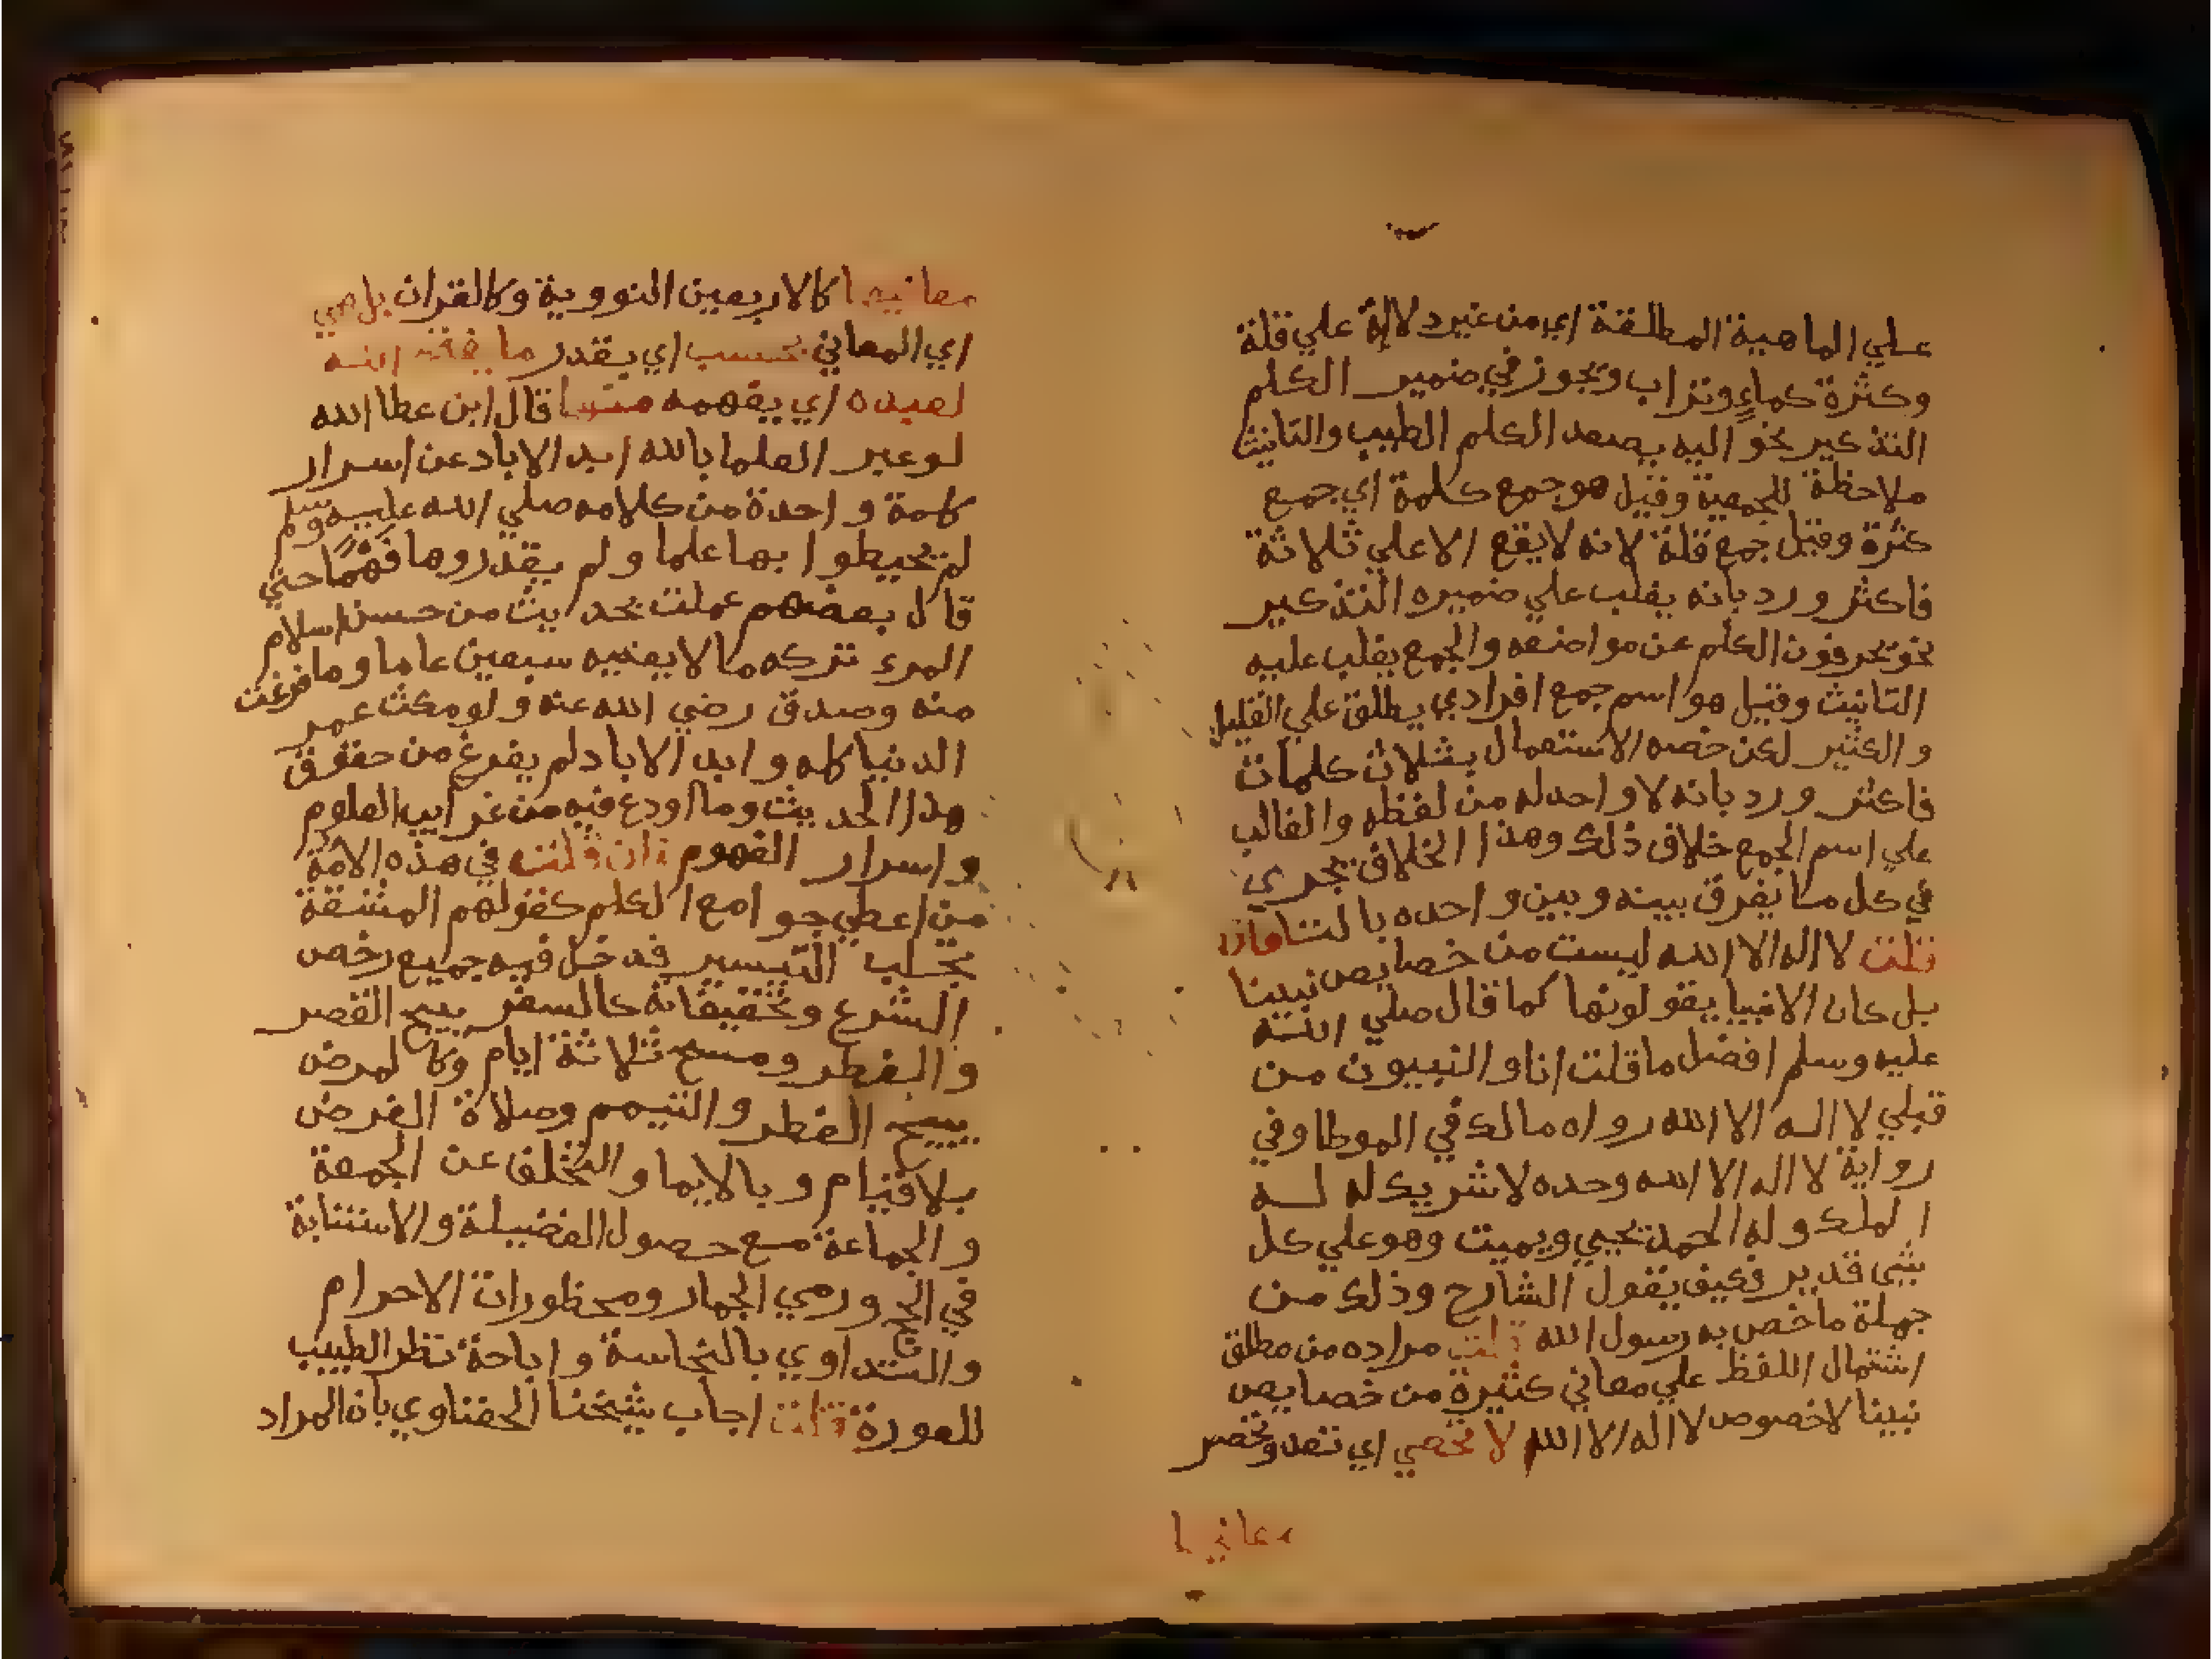 علي الماهية المطلقة اي من غير دلالة علي قلة
وكثرة كماءٍ وتراب ويجوز في ضمير الكلم
التذكير نحو اليه يصعد الكلم الطيب والتانيث
ملاحظة للجمعية وقيل هو جمع كلمة اي جمع
كثرة وقيل جمع قلة لانه لايقع الاعلي ثلاثة
فاكثر ورد بانه يغلب علي ضميره التذكير
نحو يحرفون الكلم عن مواضعه والجمع يغلب عليه
التانيث وقيل هو اسم جمع افرادي يطلق علي القليل
والكثير لكن خصه الاستعمال بثلاث كلمات
فاكثر ورد بانه لا واحد له من لفظه والغالب
علي اسم الجمع خلاف ذلك وهذا الخلاف يجري
في كل ما يفرق بينه وبين واحده بالتا فان
قلت لا اله الا الله ليست من خصايص نبينا
بل كان الانبيا يقولونها كما قال صلي الله
عليه وسلم افضل ما قلت انا والنبيون من
قبلي لا اله الا الله رواه مالك في الموطا وفي
رواية لا اله الا الله وحده لا شريك له له
الملك وله الحمد يحيي ويميت وهو علي كل
شي قدير فكيف يقول الشارح وذلك من
جملة ما خص به رسول الله قلت مراده من مطلق
اشتمال اللفظ علي معاني كثيرة من خصايص
نبينا لا خصوص لا اله الا الله لا تحصي اي تعد وتحصر
معانيها
معانيها كالاربعين النووية وكالقران بل هي
اي المعاني بحسب اي بقدر ما يفقه الله
لعبده اي يفهمه منها قال ابن عطا الله
لو عبر العلما بالله ابد الاباد عن اسرار
كلمة واحدة من كلامه صلي الله عليه وسلم
لم يحيطوا بها علما ولم يقدروها فَهْمًا حتي
قال بعضهم عملت بحديث من حسن اسلام
المرء تركه ما لا يعنيه سبعين عاما وما فرغت
منه وصدق رضي الله عنه ولو مكث عمر
الدنيا كله وابد الاباد لم يفرغ من حقوق
هذا الحديث وما اودع فيه من غرايب العلوم
واسرار الفهوم فان قلت في هذه الامة
من اعطي جوامع الكلم كقولهم المشقة
تجلب التيسير فدخل فيه جميع رخص
الشرع وتخفيفاته كالسفر يبيح القصر
والفطر ومسح ثلاثة ايام وكالمرض
يبيح الفطر والتيمم وصلاة الفرض
بلا قيام وبالايما والتخلف عن الجمعة
والجماعة مع حصول الفضيلة والاستنابة
في الحج ورمي الجمار ومحظورات الاحرام
والتداوي بالنجاسة واباحة نظر الطبيب
للعورة قلت اجاب شيخنا الحفناوي بان المراد